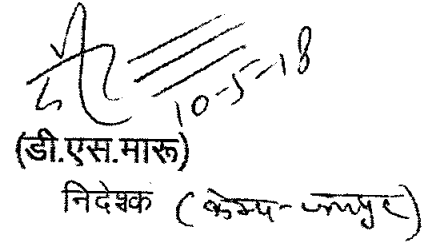 10-5-18
(डी.एस.मारू)
निदेशक (केम्प-जयपुर)